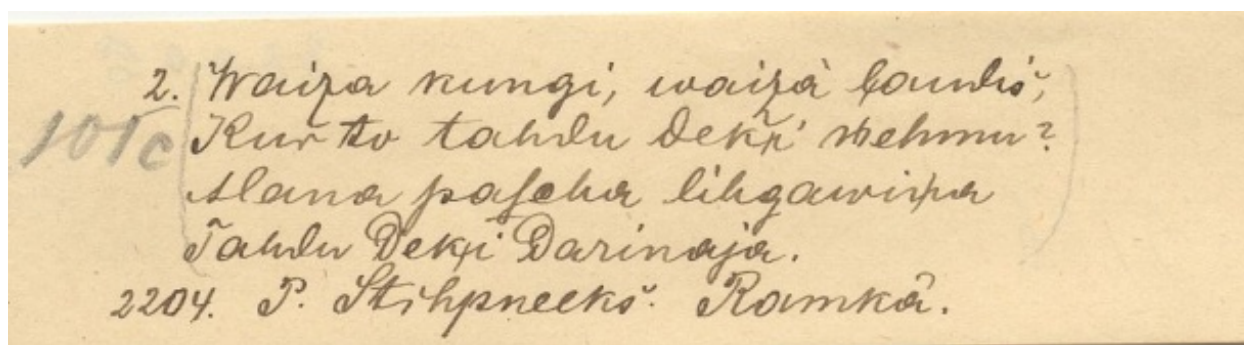 2. Waiza kungi, waizà ļaudis,
101c Kur to tahdu Deķķi nehmu?
Mana pascha lihgawiņa
Tahdu Deķķi Darinaja.
2204. P. Stihpneeks. Ramkâ.